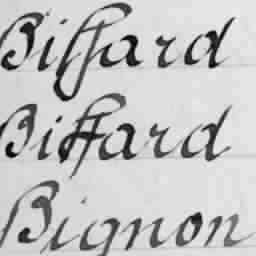 Biffard
Biffard
Bignon